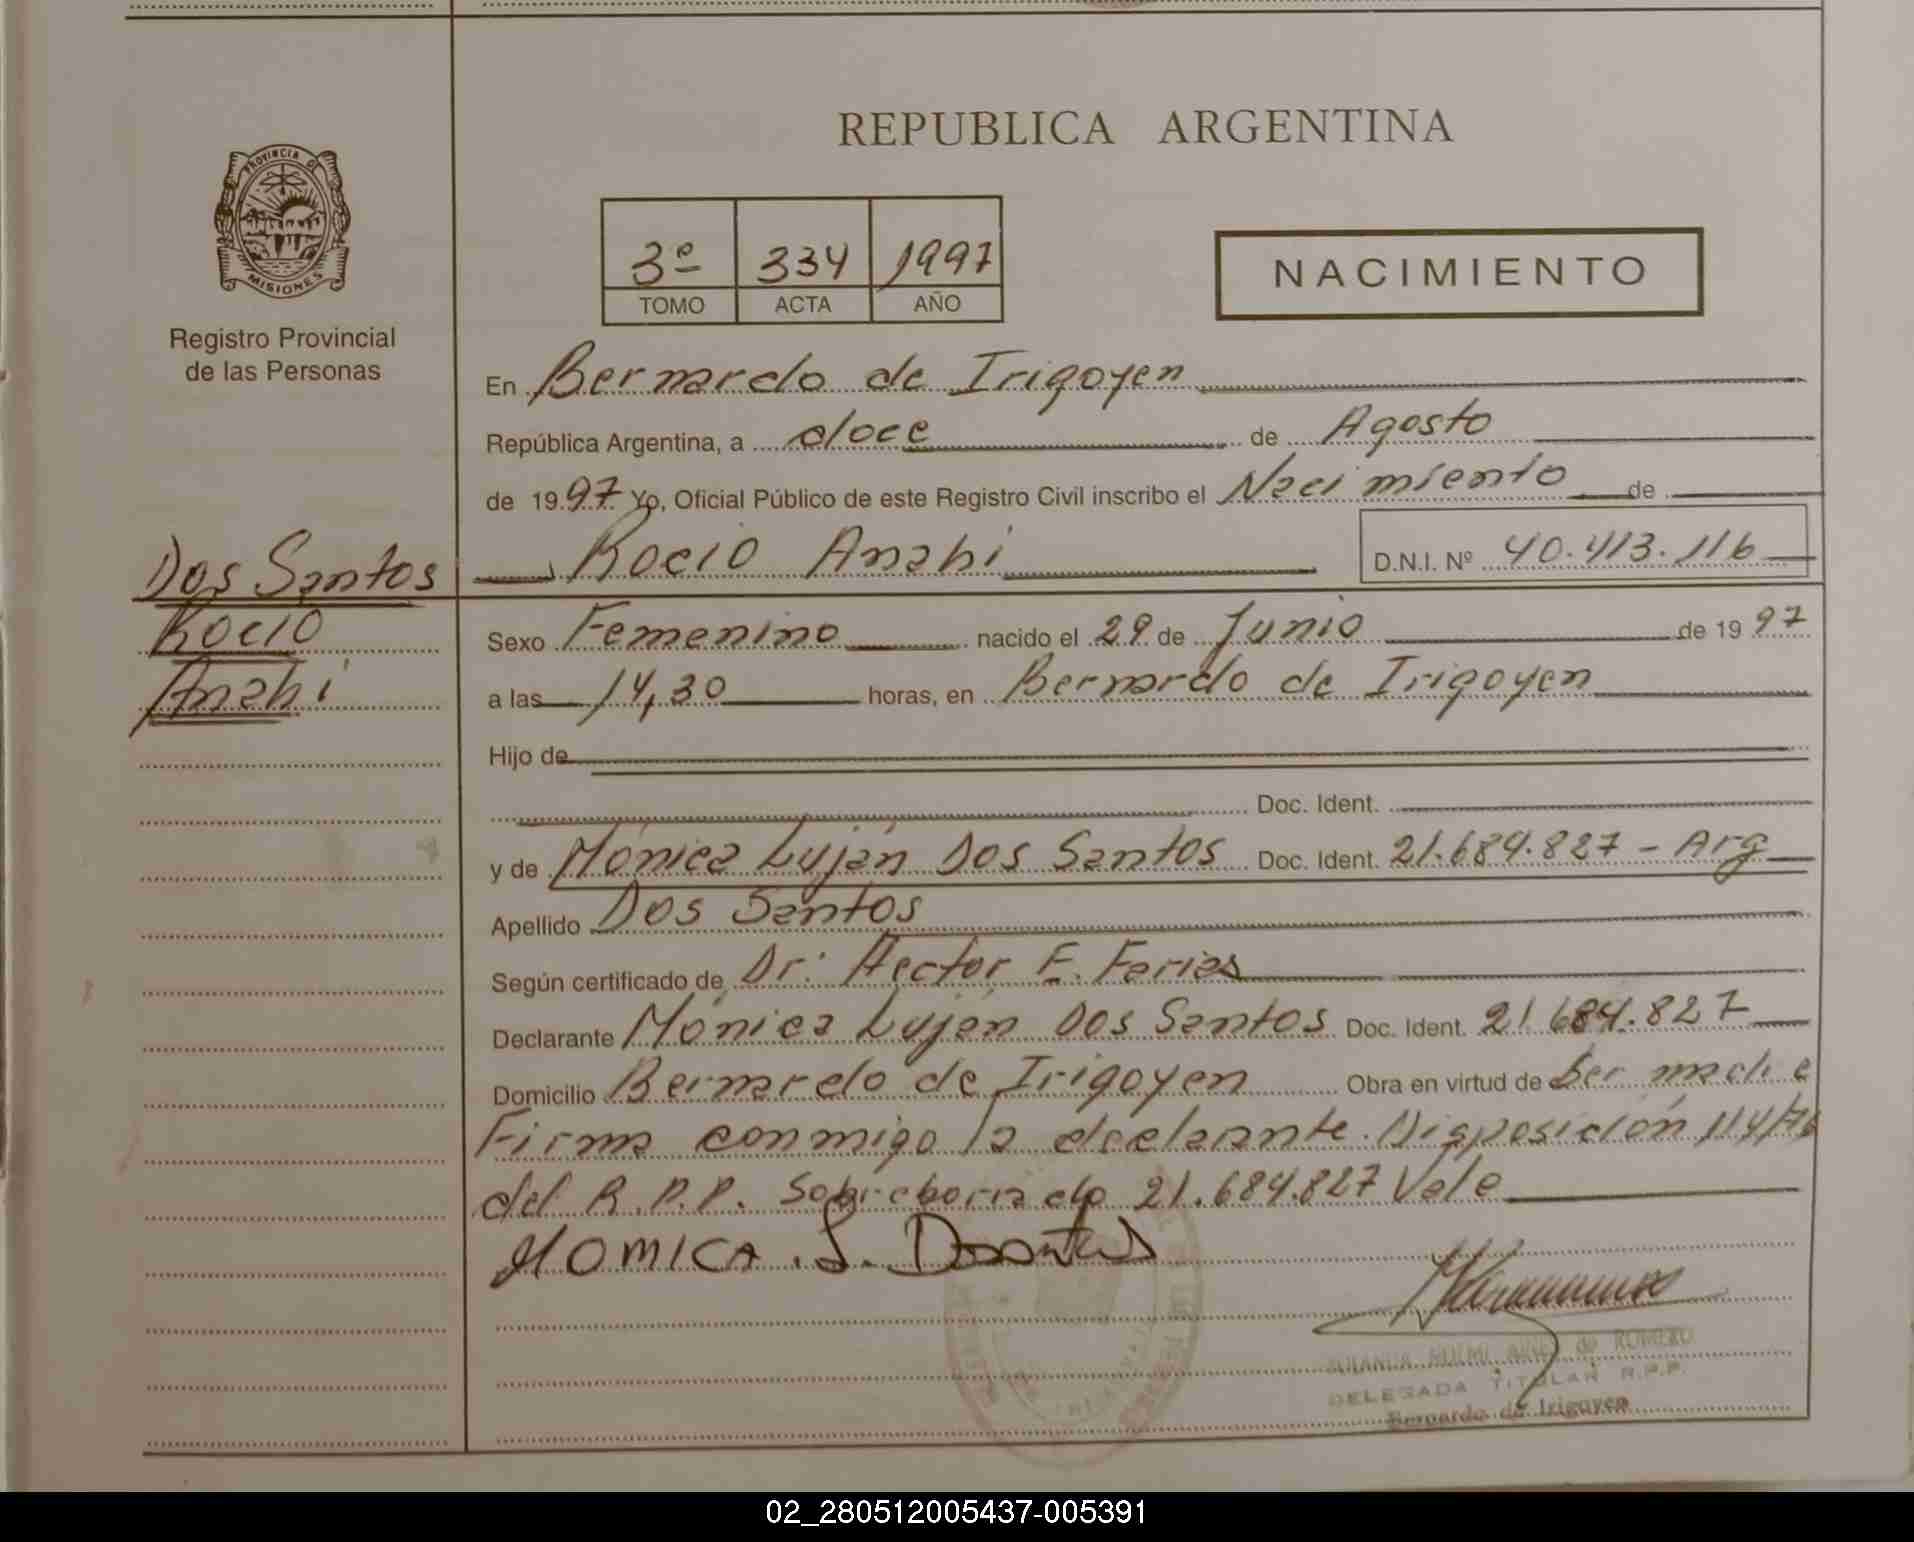 REPUBLICA ARGENTINA
PROVINCIA DE
MISIONES
Registro Provincial
de las Personas
3º 334 1997
TOMO ACTA AÑO
NACIMIENTO
En Bernardo de Irigoyen
República Argentina, a doce de Agosto
de 1997 Yo, Oficial Público de este Registro Civil inscribo el Nacimiento de
Rocio Anahi D.N.I. Nº 40.413.116
Dos Santos
Rocio
Anahi
Sexo Femenino nacido el 29 de Junio de 1997
a las 14,30 horas, en Bernardo de Irigoyen
Hijo de
Doc. Ident.
y de Mónica Luján Dos Santos Doc. Ident. 21.684.827 - Arg
Apellido Dos Santos
Según certificado de Dr: Hector E. Farias
Declarante Mónica Luján Dos Santos Doc. Ident. 21.684.827
Domicilio Bernardo de Irigoyen Obra en virtud de Ser madre
Firma conmigo la declarante. Disposición 114/76
del R.P.P. Sobreborrado 21.684.827 Vale
MOMICA. L. Dosantos
de ROMERO
DELEGADA TITULAR R.P.P.
Bernardo de Irigoyen
02_280512005437-005391